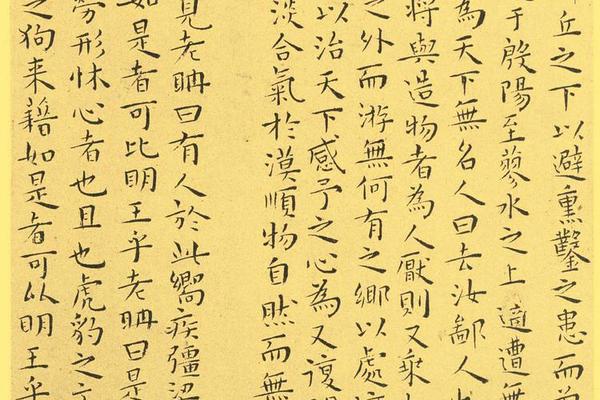 丘之下以避熏鑿之患而
于殷陽至蓼水之上適遭無
為天下無名人曰去汝鄙人也
將與造物者為人厭則又乘
之外而游無何有之鄉以處
以治天下感予之心為又復
淡合氣於漠順物自然而無
見老聃曰有人於此嚮疾彊
如是者可比明王乎老聃曰是
勞形怵心者也且也虎豹之文
之狗来藉如是者可以明王乎